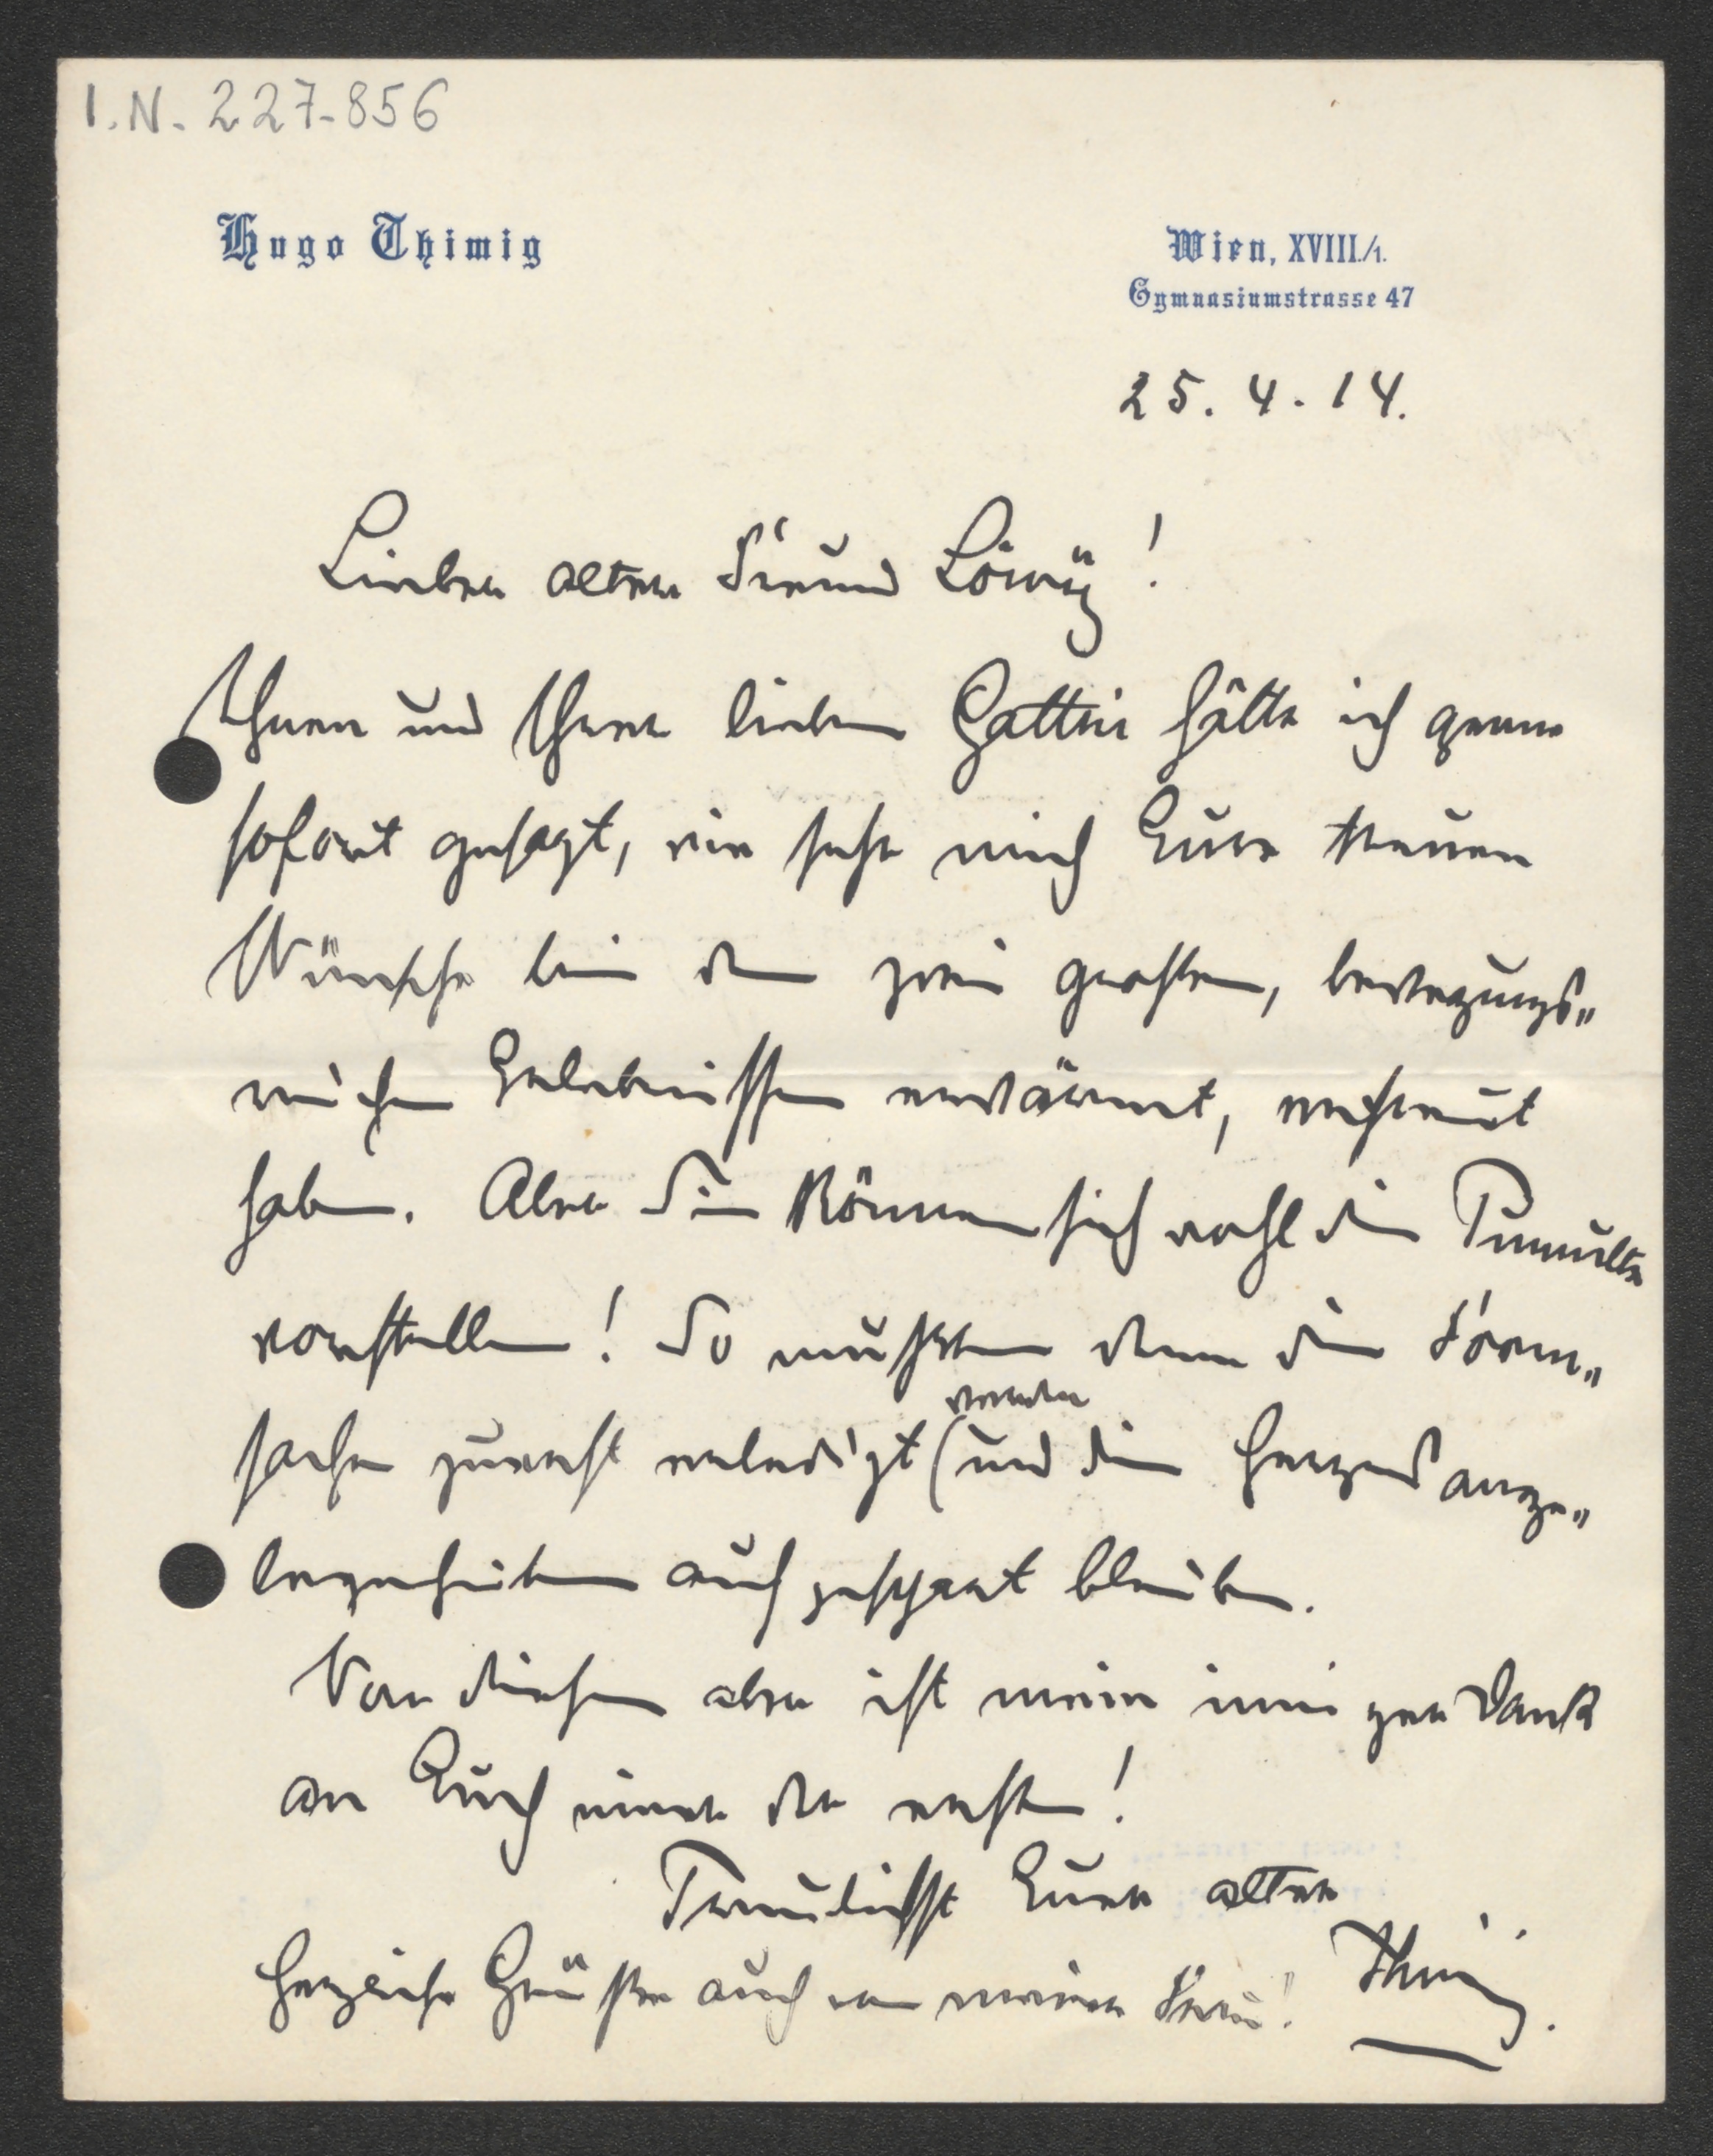 I.N. 227-856
Hugo Thimig
Wien, XVIII./1.
Gymnasiumstrasse 47
25. 4. 14.
Lieber alter Freund Löwy!
Ihnen und Ihrer lieben Gattin hätte ich gerne
sofort gesagt, wie sehr mich Eure treuen
Wünsche bei den zwei großen, bewegungs„
reichen Erlebnissen erwärmt, erfreut
haben. Aber Sie können sich wohl die Tumulte
vorstellen! So mußten denn die Form„
sachen zuerst erledigt werden (und die Herzensange„
legenheiten aufgespart bleiben.
Von diesen aber ist mein inniger Dank
an Euch einer der ersten!
Treulichst Euer alter
Thimig.
Herzliche Grüße auch von meiner Frau!